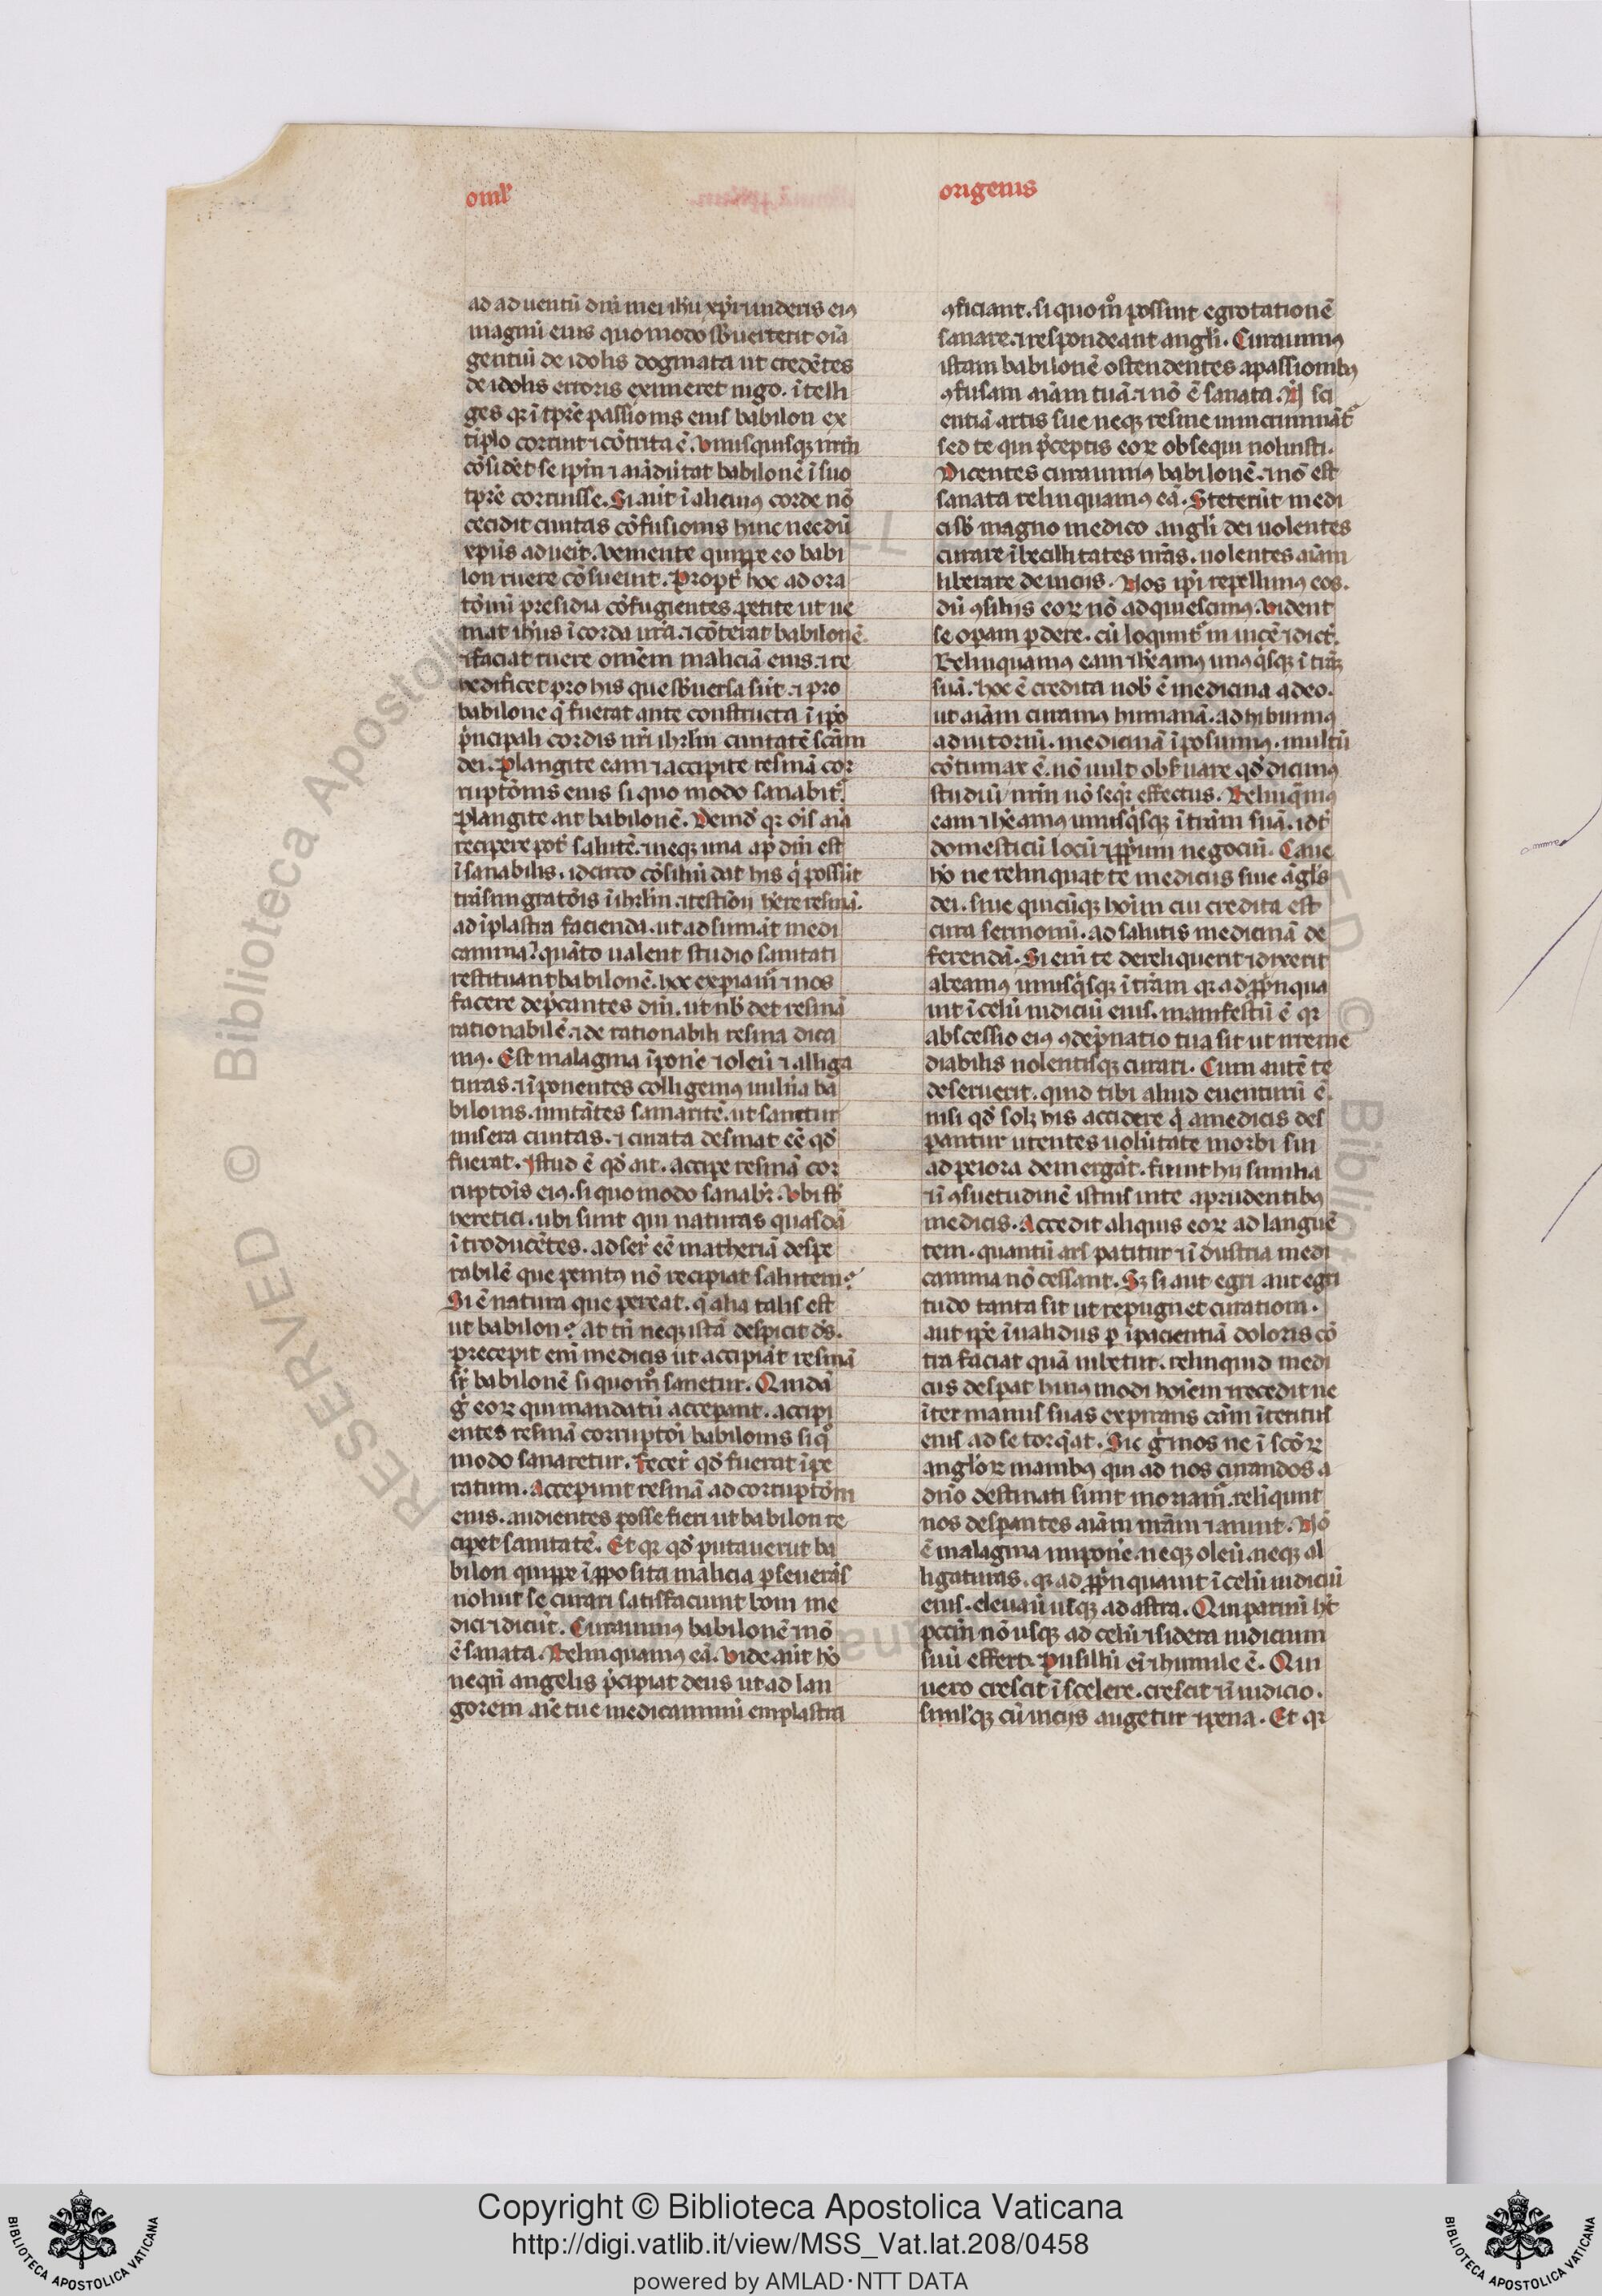 omĩ
origenis
ad aduentũ dñi mei ihũ xp̃i uideris eiꝰ
magnũ eius quomodo sb̃uerterit oĩa
gentiũ de idolis dogmata ut credẽtes
de idolis erroris eximeret iugo. ĩtelli
ges qꝛ ĩ tp̃re passionis eius babilon ex
tiplo corruit ⁊ cõtrita ẽ. Unusquisqꝫ ur̃m
cõsidẽt se ip̃m ⁊ aĩaduertat babilonẽ ĩ suo
tp̃re corruisse. Si aũt ĩ alicuiꝰ corde nõ
cecidit ciuitas cõfusionis huic necdũ
xp̃us aduẽit. Ueniente quippe eo babi
lon ruere cõsueuit. Propt̃ hoc ad ora
tõnũ presidia cõfugientes petite ut ue
niat ihũs ĩ corda ur̃a. ⁊ cõterat babilonẽ
⁊ faciat ruere omẽm maliciã eius. ⁊ re
hedificet pro his que sb̃uersa sũt. ⁊ pro
babilone q̃ fuerat ante constructa ĩ ip̃o
p̃ncipali cordis ur̃i ihrlm̃ ciuitatẽ scãm
dei. Plangite eam ⁊ accipite resinã cor
ruptõnis eius si quo modo sanabit᷑.
Plangite ait babilonẽ. Deinď qꝛ oĩs aĩa
recipere pot̃ salutẽ. neqꝫ una ap̃ dm̃ est
ĩsanabilis. idcirco cõsiliũ dat his q̃ possũt
ad ĩplastra facienda. ut adsumãt medi
camina? quãto ualent studio sanitati
restituant babilonẽ. hoc experiam᷑ ⁊ nos
facere dep̃cantes dm̃. ut nob̃ det resinã
rationabilẽ. ⁊ de rationabili resina dica
mꝰ. Est malagma ĩpon̾e ⁊ oleũ ⁊ alliga
turas. ⁊ ĩponentes colligemꝰ uuln̾a ba
bilonis. imitãtes samaritẽ. ut sanetur
misera ciuitas. ⁊ curata desinat eẽ qď
fuerat. Istud ẽ qď ait. accipe resinã cor
ruptõis eiꝰ. si quo modo sanabr̃. Ubi st̃
heretici. ubi sunt qui naturas quasdã
ĩtroducẽtes. adser̃ eẽ matheriã despe
rabilẽ que penitꝰ nõ recipiat salutem?
Si ẽ natura que pereat. q̃ alia talis est
ut babilon? At tñ neqꝫ istã despicit dš.
Precepit eni medicis ut accipiãt resinã
sr̃ babilonẽ si quom̊ sanetur. Quidã
g̊ eoꝝ qui mandatũ acceperant. accipi
entes resinã corruptõi babilonis si q̊
modo sanaretur. Fecer̃ qď fuerat ĩpe
ratum. Acceperunt resinã ad corruptõem
eius. audientes posse fieri ut babilon re
ciperet sanitatẽ. Et qꝛ qď putauerũt ba
bilon quippe ĩpposita malicia perseuerãs
noluit se curari satisfaciunt boni me
dici ⁊ dicũt. Curauimꝰ babilonẽ ⁊ nõ
ẽ sanata. Relinquamus eã. Vide aũt hõ
nequñ angelis p̃cipiat deus ut ad lan
gorem aĩe tue medicaminũ emplastra
ꝯficiant. si quom̊ possint egrotationẽ
sanare. ⁊ respondeant angli. Curauimꝰ
istam babilonẽ ostendentes a passionibꝰ
ꝯfusam aĩam tuã. ⁊ nõ ẽ sanata. Nõ sci
entiã artis sue neqꝫ resine incriminãt᷑
sed te qui p̃ceptis eoꝝ obsequi noluisti.
Dicentes curauimꝰ babilonẽ. ⁊ nõ est
sanata relinquamꝰ eã. Steterũt medi
ci sb̃ magno medico angli dei uolentes
curare ĩbecillitates nr̃as. uolentes aĩam
liberare de uiciis. Nos ip̃i repellimꝰ eos.
dũ ꝯsiliis eoꝝ nõ adquiescimꝰ. Uident
se operam perdere. cũ loquunt᷑ ĩuicẽ ⁊ dict̃.
Relinquamꝰ eam ⁊ abeamꝰ unꝰq̃sqꝫ ĩ tr̃aꝫ
suã. hoc ẽ credita nob̃ ẽ medicina a deo.
ut aĩam curamꝰ humanã. adhibuimꝰ
adiutoriũ. medicinã ĩposuimꝰ. multũ
cõtumax ẽ. nõ uult obs̾uare qď dicimꝰ
studiũ nr̃m nõ seqr̃ effectus. Relinq̃mꝰ
eam ⁊ abeamꝰ unusq̃sqꝫ ĩ trãm suã. id ẽ
domesticũ locũ ⁊ ꝓprium negociũ. Caue
hõ ne relinquat te medicus siue ãgls
dei. siue quicũqꝫ hoĩm cui credita est
cura sermonũ. ad salutis medicinã de
ferendã. Si eni te dereliquerit ⁊ dixerit
abeamꝰ unusq̃sqꝫ ĩ trãm qꝛ adꝓp̃nqua
uit ĩ celũ iudiciũ eius. manifestũ ẽ qꝛ
abscessio eiꝰ ꝯdẽpnatio tua sit ut irreme
diabilis nolentisqꝫ curari. Cum autẽ te
deseruerit. quid tibi aliud euenturũ ẽ.
nisi qď solꝫ his accidere q̃ a medicis des
perantur utentes uolũtate morbi sui
ad peiora demergãt. fiunt hii similia
medicis. Accedit aliquis eoꝝ ad languẽ
tem. quantũ ars patitur ⁊ ĩdustria medi
camina nõ cessant. Sꝫ si aut egri aut egri
tudo tanta sit ut repugnet curationi.
aut ip̃e ĩualidus per ĩpacientiã doloris cõ
tra faciat quã iubetur. relinquid medi
cus desperat huiꝰmodi hoĩem ⁊ recedit ne
ĩter manus suas expirans cãm ĩteritus
eius ad se torq̃at. Sic g̊ ⁊ nos ne ĩ scõꝝ
angloꝝ manibꝰ qui ad nos curandos a
dño destinati sunt moriam᷑. reliqunt
nos desperantes aĩam nr̃am ⁊ aiunt. Nõ
ẽ malagma impon̾e. neqꝫ oleũ. neqꝫ al
ligaturas. qꝛ adꝓp̃nquauit ĩ celũ iudiciũ
eius. eleuauit usqꝫ ad astra. Qui paruũ ht̃
pctm̃ nõ usqꝫ ad celũ ⁊ sidera iudicium
suũ effert. Pusillũ ei ⁊ humile ẽ. Qui
uero crescit ĩ scelere. crescit ⁊ ĩ iudicio.
simlʼqꝫ cũ uiciis augetur ⁊ pena. Et qꝛ
Copyright © Biblioteca Apostolica Vaticana
http://digi.vatlib.it/view/MSS_Vat.lat.208/0458
powered by AMLAD·NTT DATA
BIBLIOTECA APOSTOLICA VATICANA
BIBLIOTECA APOSTOLICA VATICANA